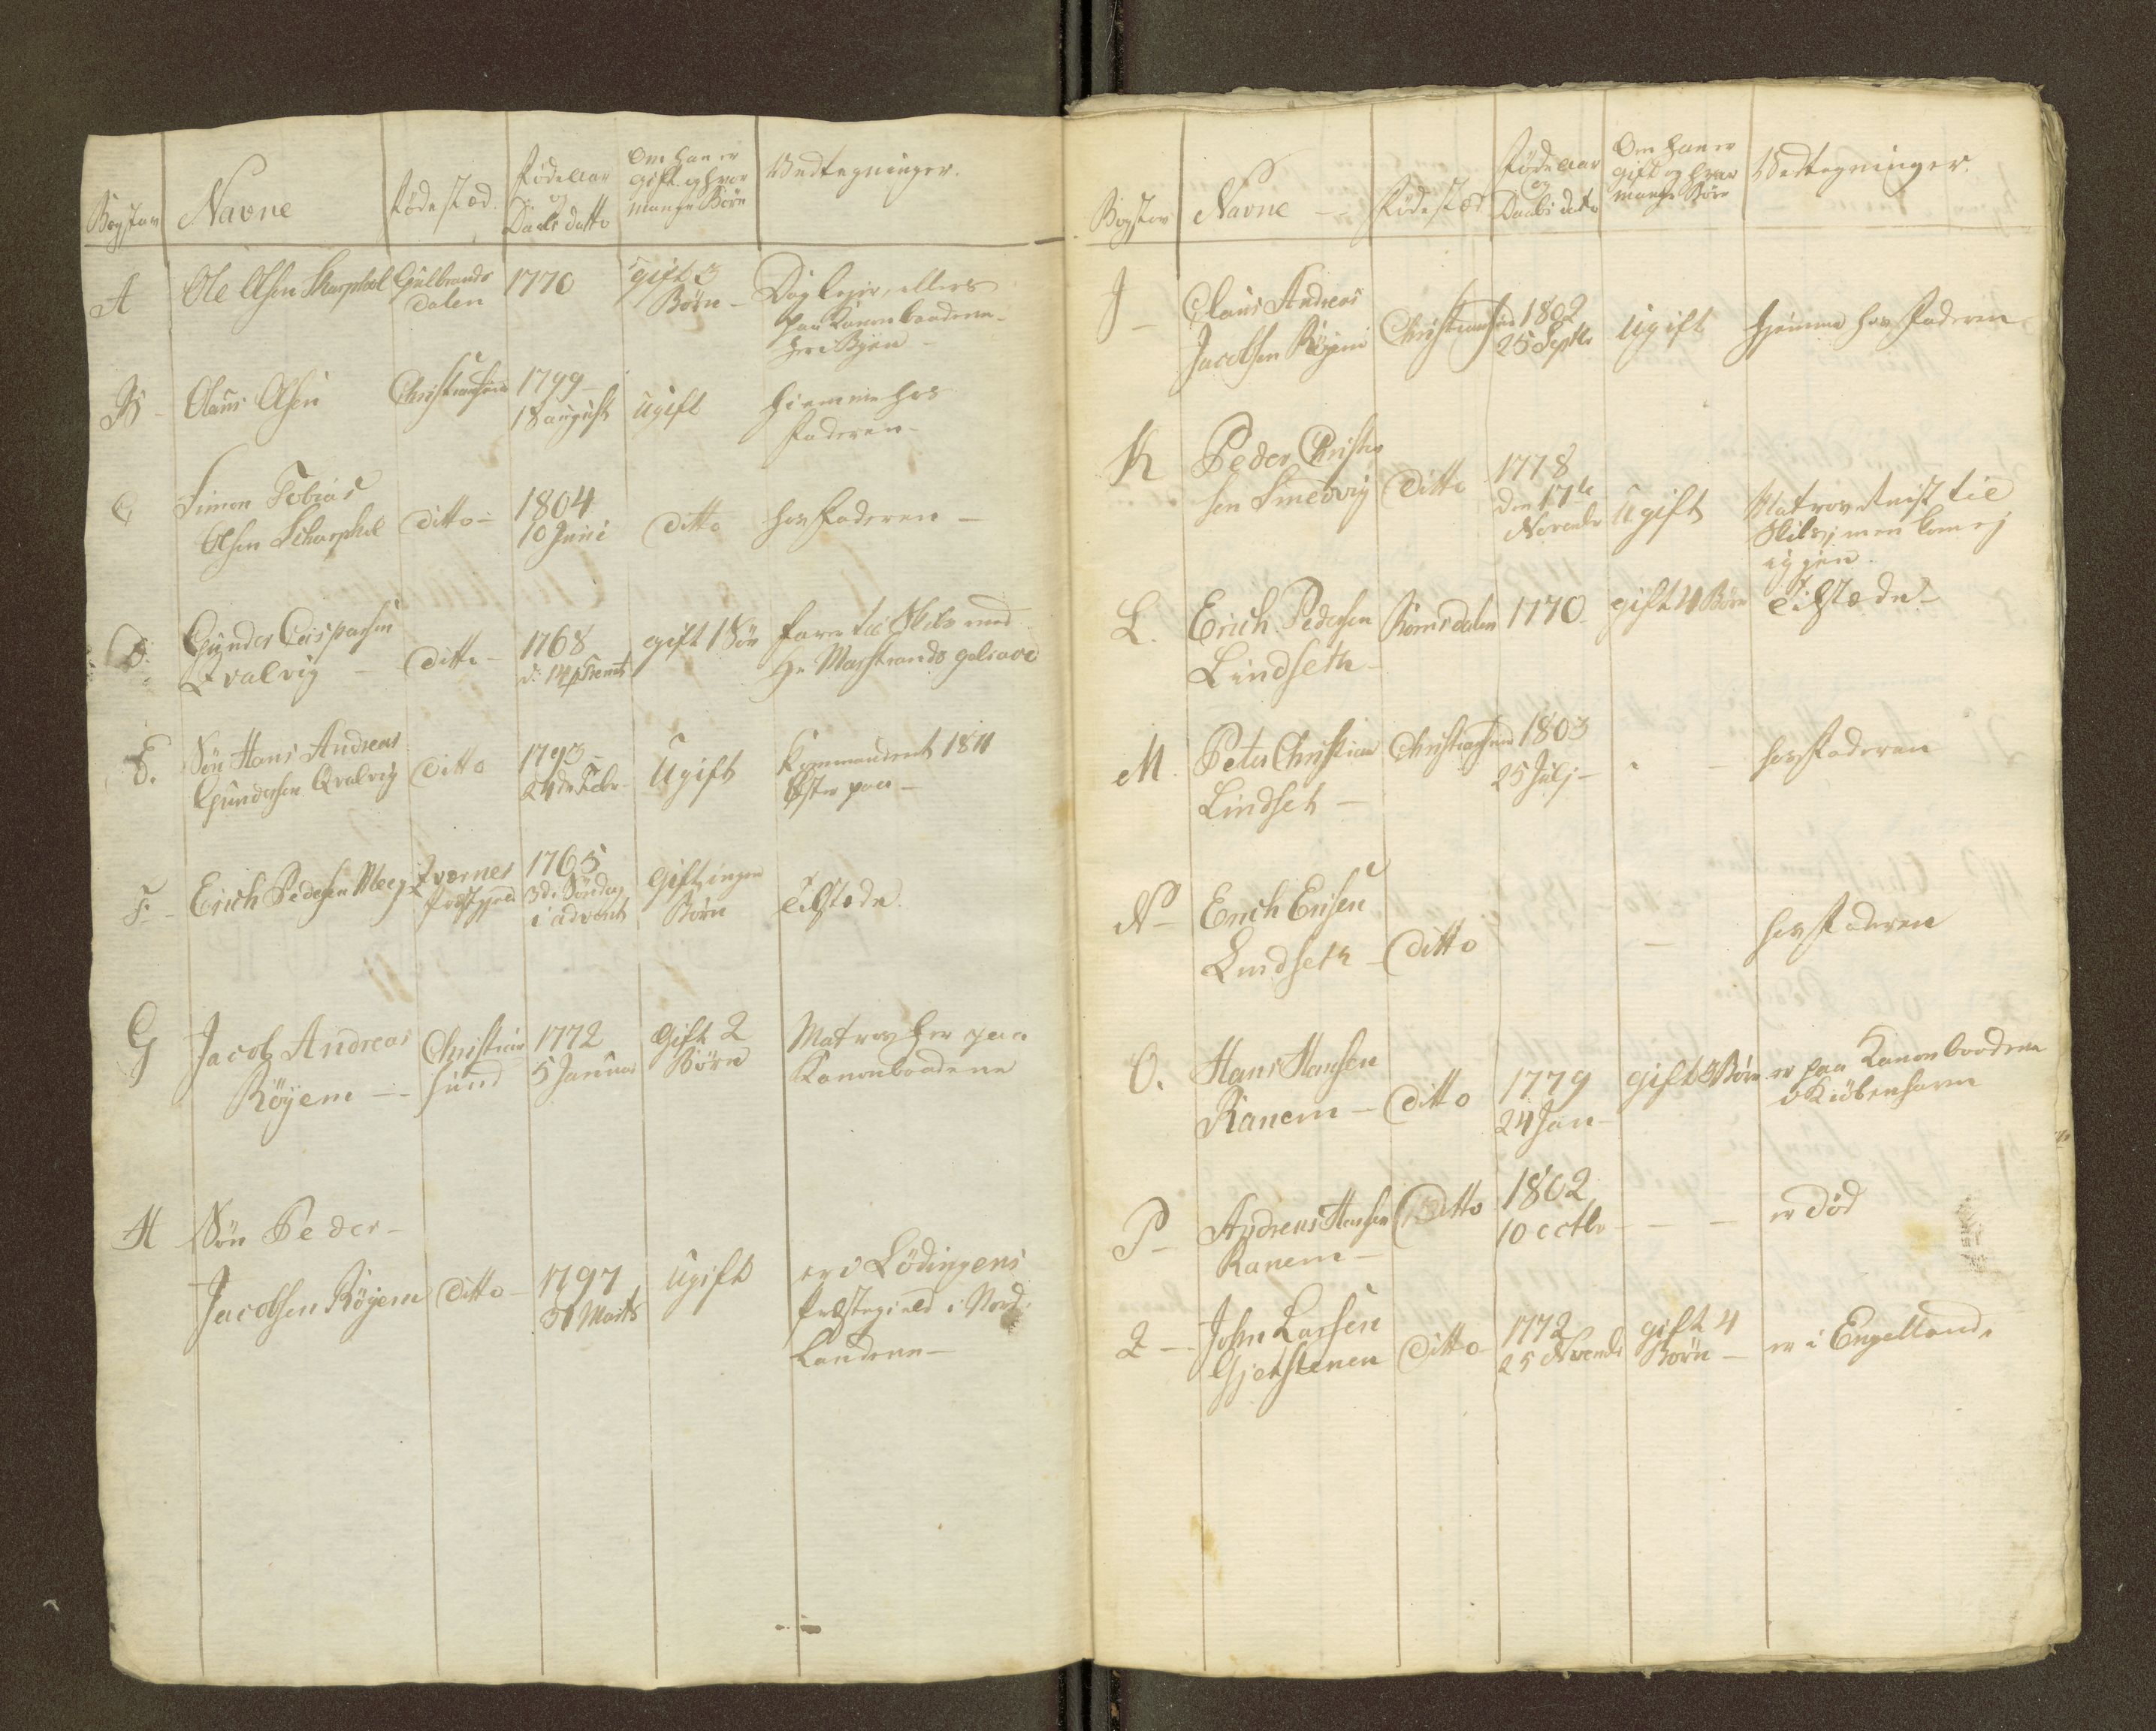 Bogstav
Navne
Fødested.
Fødeaar
og
Daabs datto
Om han er
gift og hvor
mange Børn
Vedtegninger.
A
Ole Olsen Skarphol
Gulbrands
dalen
1770
gift 3
Børn -
Daglejer, ellers
paa Kanonbaadene
her i Byen -
B -
Olaus Olsen
Christiansund
1799 -
18 august
Ugift
hiemme hos
Faderen -
C
Simon Tobias
Olsen Scharphol
ditto -
1804
10 Juni
ditto
hos Faderen -
D.
Gunder Caspersen
Qvalvig -
ditto -
1768
gift 1 Søn
farer til Skibs med
Hr Marstrands galeave
E.
Søn Hans Andreas
Gundersen Qvalvig
ditto
1793 -
24de Febr
Ugift
Kommanderet 1811
F -
Erich Pedersen
Qværnes
Præstgield
1765
3de Søndag
i advent
Gift ingen
Børn
tilstede.
G
Jacob Andreas
Röyem -
Christian
sund
1772
5 Januar
Gift 2
Børn
Matros her paa
Kanonbaadene
H
Søn Peder -
Jacobsen Röyem
ditto -
1797
31 Marts
Ugift
er i Lödingens
Præstegield i Nord-
Landene -
Bogstav
Navne -
Fødested
Fødeaar
og
Daabs dato
Om han er
gift og hvor
mange Børn
Vedtegninger.
J -
Claus Andreas
Jacobsen Röyem
Christiansund
1802
25 Septbr
Ugift
hjemme hos Faderen
K
Peder Christen
sen Smedvig
ditto
1778
den 17de
Novembr
Ugift
Matros reist til
Skibs, men kom ej
igjen.
L.
Erich Pedersen
Lindseth -
Romsdalen
1770
gift 4 Børn
tilstede -
M
Peter Christian
Lindset -
Christiansund
1803
25 Julj -
hos Faderen
N -
Erich Ersen
Lindseth -
ditto
-
hos Faderen
O.
Hans Hansen
Ranem -
ditto
1779
24 Jan -
gift 3 Børn
er paa Kanonbaadene
i Kiöbenhavn
P -
Andreas Hansen
Ranem -
ditto
1802
10 octbr
- -
er død
Q -
John Larsen
Gjetstenen
ditto -
1772
25 Novembr
gift 4
Børn -
er i Engelland.